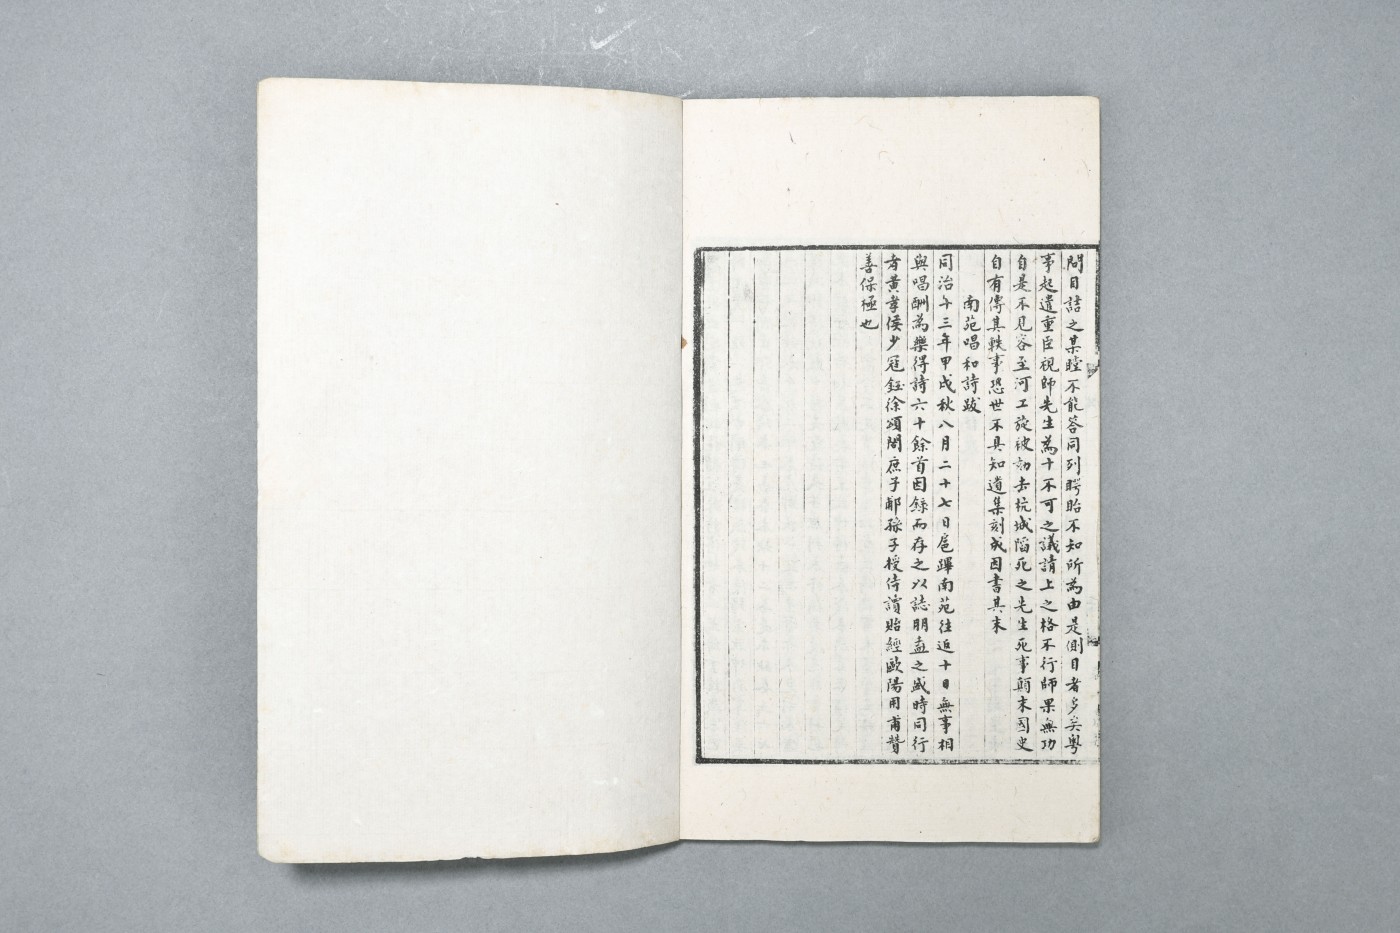 問目諮之某瞠不能答同列睜眙不知所為由是側目者多矣粵
事起遣重臣視師先生為十不可之議請上之格不行師果無功
自是不見容至河工旋被劾去杭城陷死之先生死事顛末國史
自有傳其軼事恐世不具知遺集刻成因書其末
南苑唱和詩跋
同治十三年甲戌秋八月二十七日扈蹕南苑往返十日無事相
與唱酬為樂得詩六十餘首因錄而存之以誌朋盍之盛時同行
者黃孝侯少冠鈺徐頌閣庶子郙孫子授侍讀貽經歐陽用甫贊
善保極也